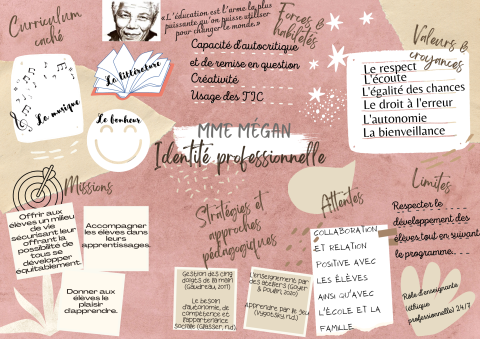 Curriculum
caché
«L'éducation est l'arme la plus
puissante qu'on puisse utiliser
pour changer le monde.»
La littérature
La musique
Le bonheur
Forces &
habiletés
Capacité d'autocritique
et de remise en question
Créativité
Usage des TIC
Valeurs &
croyances
Le respect
L'écoute
L'égalité des chances
Le droit à l'erreur
L'autonomie
La bienveillance
MME MÉGAN
Identité professionnelle
Missions
Offrir aux
élèves un milieu
de vie
sécurisant leur
offrant la
possibilité de
tous se
développer
équitablement.
Accompagner
les élèves dans
leurs
apprentissages.
Donner aux
élèves le
plaisir
d'apprendre.
Stratégies et
approches
pédagogiques
Gestion des cinq
doigts de la main
(Gaudreau, 2017)
Le besoin
d'autonomie, de
compétence et
l'appartenance
sociale (Glasser, n.d.)
L'enseignement par
des ateliers (Goyer
& Poulin, 2020)
Apprendre par le jeu
(Vygotsky, n.d.)
Attentes
COLLABORATION
ET RELATION
POSITIVE AVEC
LES ÉLÈVES
AINSI QU'AVEC
L'ÉCOLE ET LA
FAMILLE
Limites
Respecter le
développement des
élèves tout en suivant
le programme.
Rôle d'enseignante
(éthique
professionnelle) 24/7